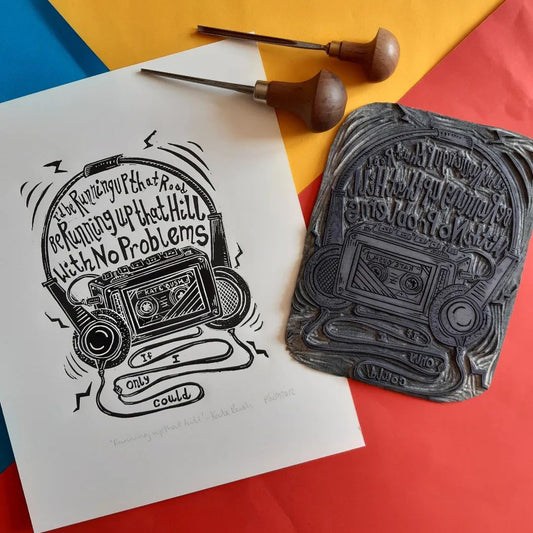 I'd be Running up that Road
Be Running up that Hill
With No Problems
KATE BUSH
If I
Only
Could
"Running up that hill" - Kate Bush